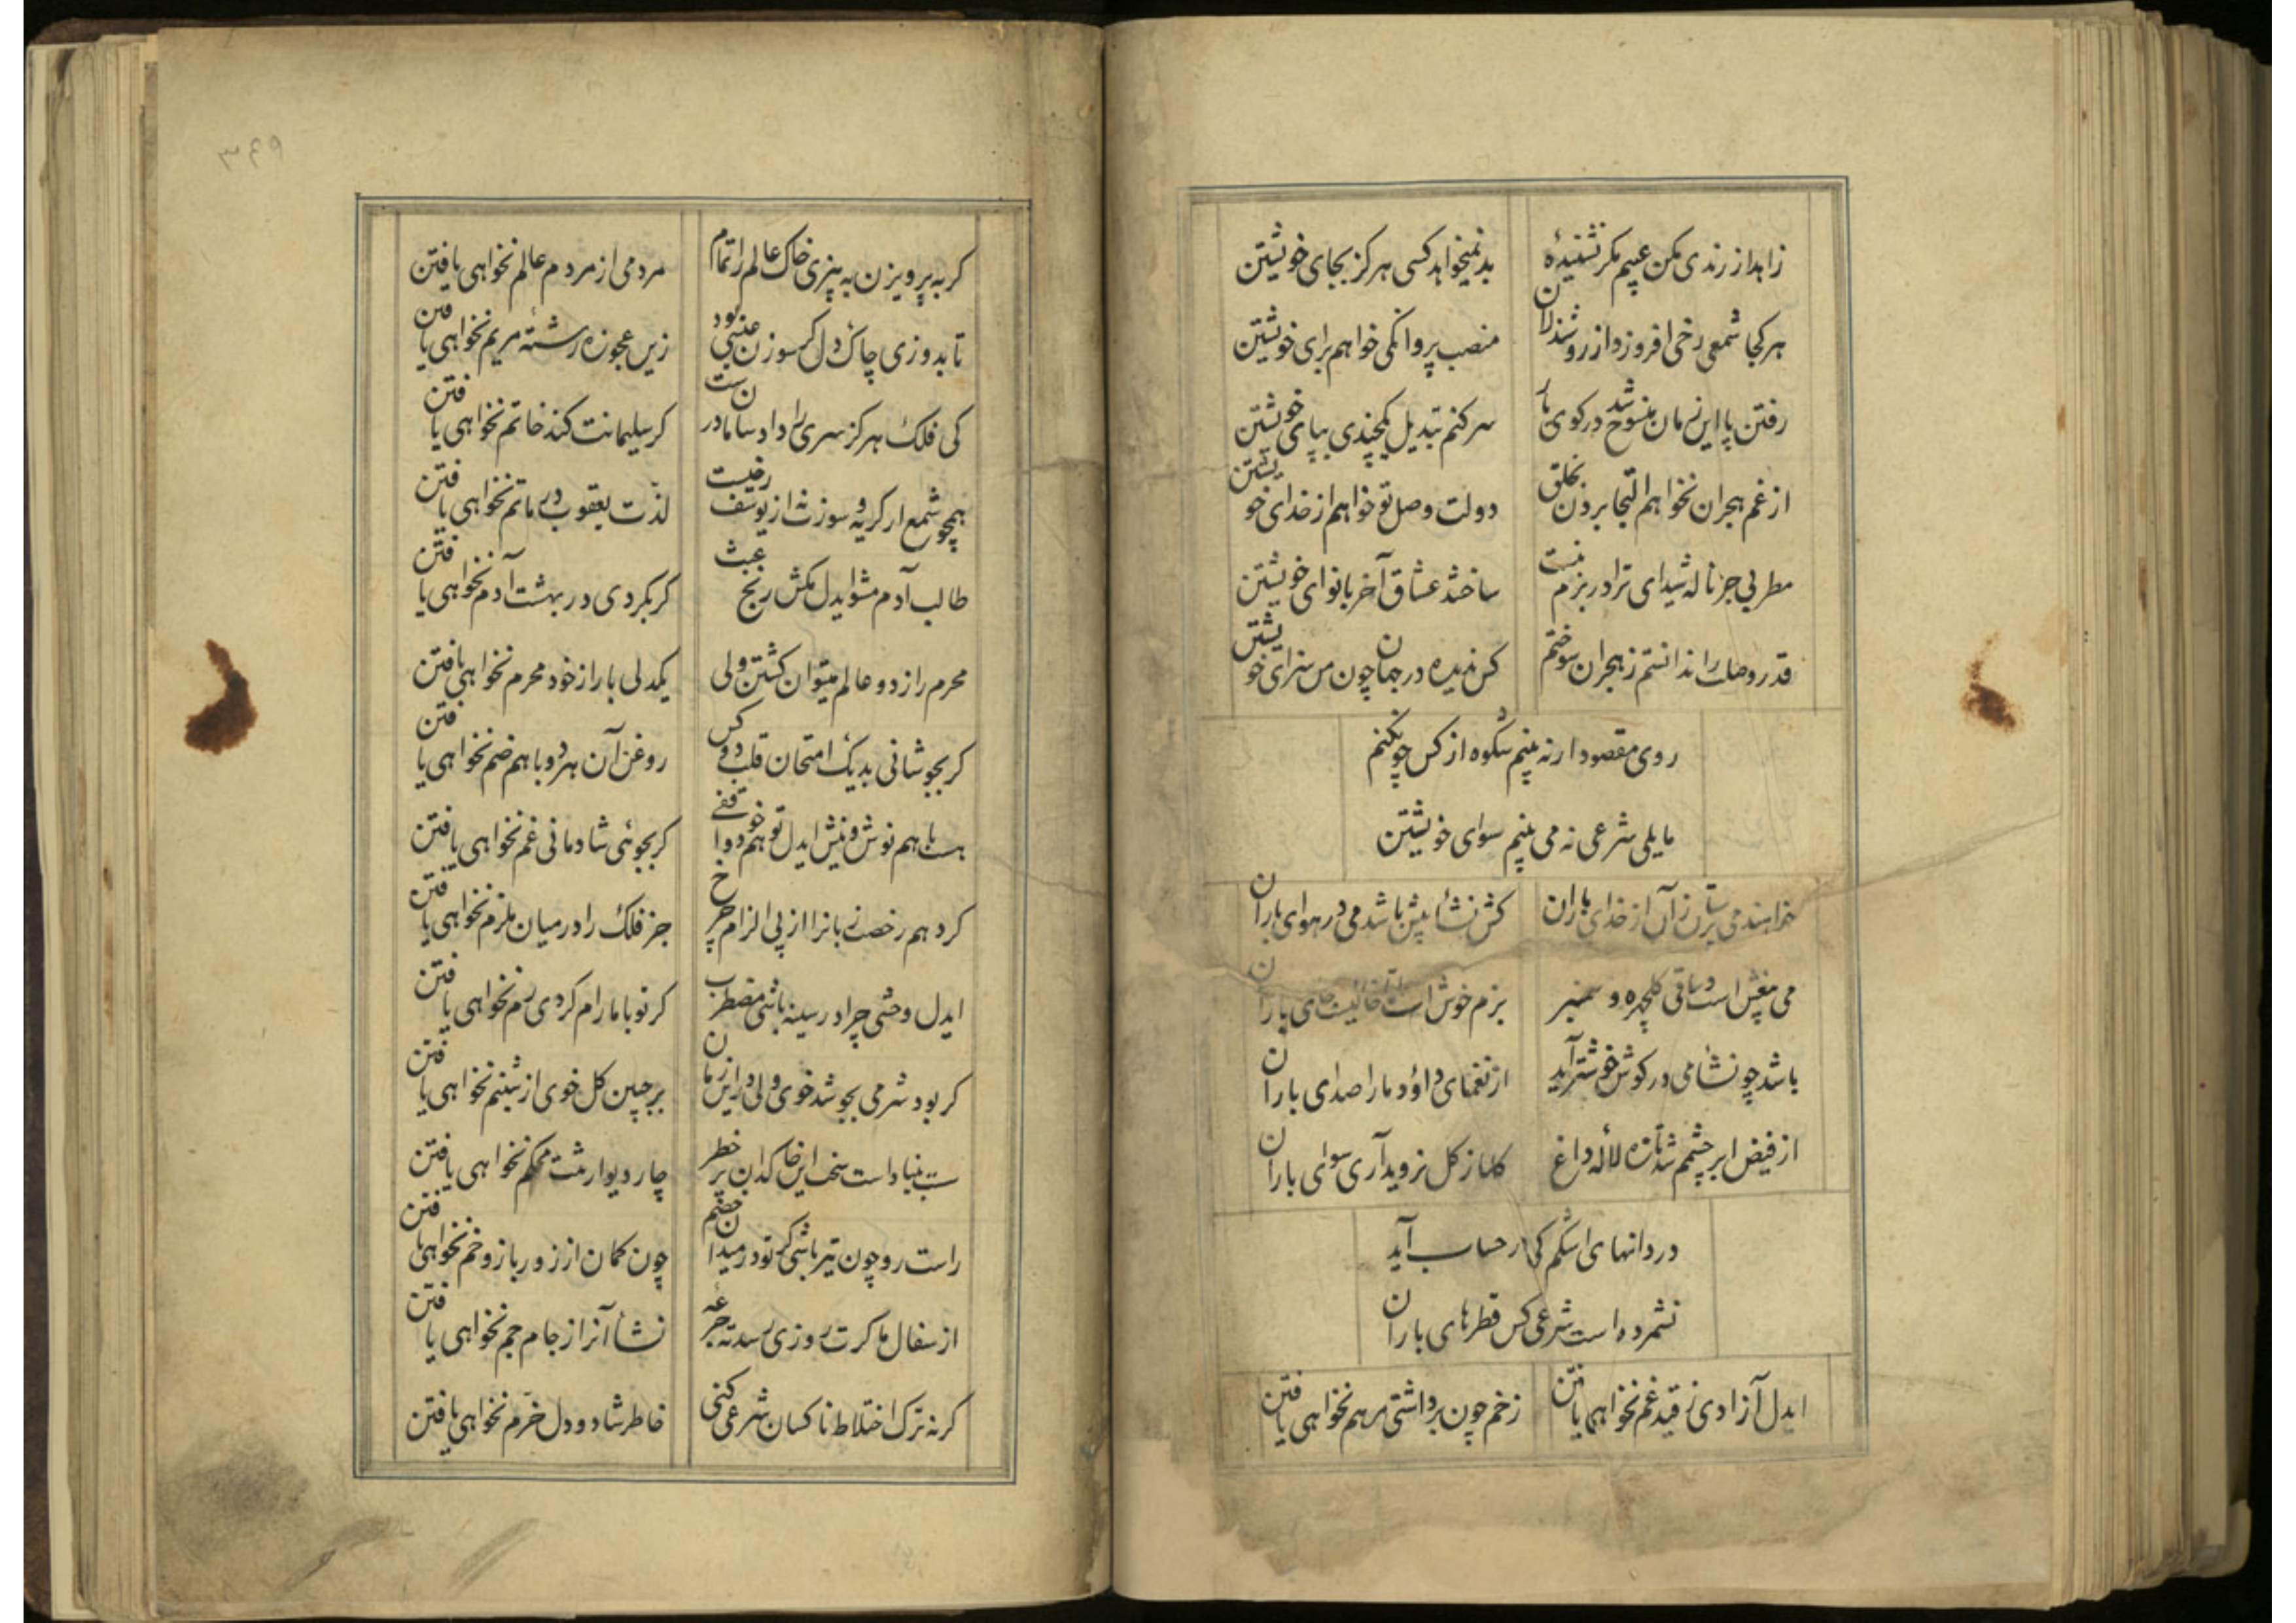 زاهد از رندی مکن عیبم مگر نشنیدهٔ
بد نمیخواهد کسی هرکز بجای خویشتن
هر کجا شمعی رخی افروزد از روشندلان
منصب پروانکی خواهم برای خویشتن
رفتن پا این زمان منسوخ شد در کوی یار
سر کنم تبدیل یکچندی بپای خویشتن
از غم هجران نخواهم التجا بردن بخلق
دولت وصل تو خواهم از خدای خویشتن
مطربی جز ناله شیدای ترا در بزم نیست
ساختند عشاق آخر با نوای خویشتن
قدر وصلت را ندانستم ز هجران سوختم
کس ندیده در جهان چون من سزای خویشتن
روی مقصود ار نه بینم شکوه از کس چو نکنم
مایلی شرعی نه می بینم سوای خویشتن
خواهند می پرستان زآن از خدای باران
کش نشأ بیش باشد می در هوای باران
می بیغش است و ساقی کلچهره و سمنبر
بزم خوش است خالیست جای باران
باشد چو نشأ می در کوش خوشتر آید
از نغمهای داؤد ما را صدای باران
از فیض ابر چشمم شد تازه لالهٔ داغ
کلها ز کل نروید آری سوای باران
دردانهای اشکم کی در حساب آید
نشمرده است شرعی کس قطرهای باران
ایدل آزادی ز قید غم نخواهی یافتن
زخم چون برداشتی مرهم نخواهی یافتن
۳۴۹
کر به پرویزن به بیزی خاک عالم را تمام
مردمی از مردم عالم نخواهی یافتن
تا بدوزی چاک دل کر سوزن عیسی بود
زین عجوزه رشتهٔ مریم نخواهی یافتن
کی فلک هرکز سری را داد سامان درست
کر سلیمانت کند خاتم نخواهی یافتن
همچو شمع ار کریه و سوزت از یوسف رخیست
لذت یعقوب در ماتم نخواهی یافتن
طالب آدم مشو ایدل مکش رنج عبث
کر بکردی در بهشت آدم نخواهی یافتن
محرم راز دو عالم میتوان کشتن ولی
یکدلی یار از خود محرم نخواهی یافتن
کر بجوشانی بدیک امتحان قلب دو کس
روغن آن هر دو با هم ضم نخواهی یافتن
هست با هم نوش و نیش ایدل تو هم خو وا
کر بجوئی شادمانی غم نخواهی یافتن
کرد هم رخصت زبانرا از پی الزام چرخ
جز فلک را در میان ملزم نخواهی یافتن
ایدل وحشی چرا در سینه باشی مضطرب
کر تو با ما رام کردی رم نخواهی یافتن
کر بود شرمی بجوشد خوی ولی در این زمان
بر جبین کل خوی از شبنم نخواهی یافتن
سست بنیاد است سخت این خاکدان پر خطر
چار دیوارشت محکم نخواهی یافتن
راست رو چون تیر باشی کر تو در میدان خصم
چون کمان از زور بازو خم نخواهی یافتن
از سفال ما کرت روزی رسد ته جرعهٔ
نشأ آنرا ز جام جم نخواهی یافتن
کر نه ترک اختلاط ناکسان شرعی کنی
خاطر شاد و دل خرم نخواهی یافتن